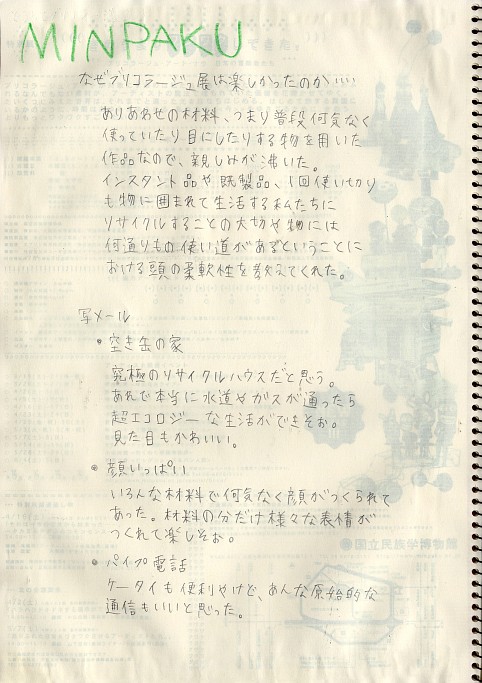 MINPAKU
なぜブリコラージュ展は楽しかったのか…
ありあわせの材料、つまり普段何気なく
使っていたり目にしたりする物を用いた
作品なので、親しみが沸いた。
インスタント品や既製品、1回使い切り
も物に囲まれて生活する私たちに
リサイクルすることの大切や物には
何通りもの使い道があるということに
おける頭の柔軟性を教えてくれた。
写メール
・空き缶の家
究極のリサイクルハウスだと思う。
あれで本当に水道やガスが通ったら
超エコロジーな生活ができそお。
見た目もかわいい。
・顔いっぱい
いろんな材料で何気なく顔がつくられて
あった。材料の分だけ様々な表情が
つくれて楽しそお。
・パイプ電話
ケータイも便利やけど、あんな原始的な
通信もいいと思った。